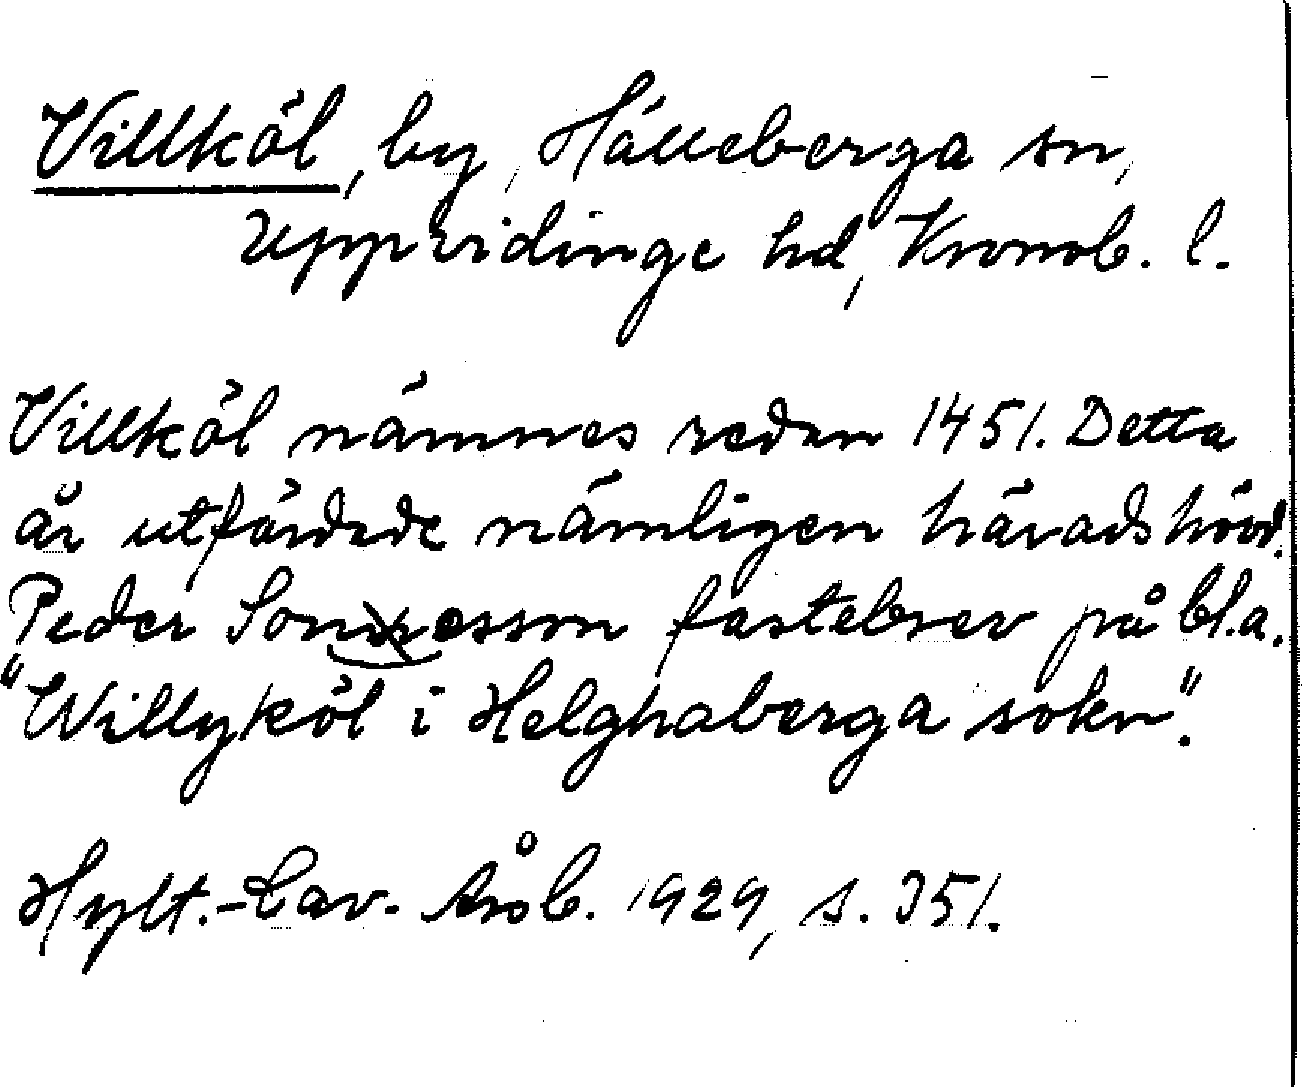 Villköl, by, Hälleberga sn,
Uppvidinge hd, Kronob. l.
Villköl nämnes redan 1451. Detta
år utfärdade nämligen häradshövd.
Peder esson fastebrev på bl.a.
"Willyköl i Helghaberga sokn".
Hylt.-Cav. Årsb. 1929, s. 351.